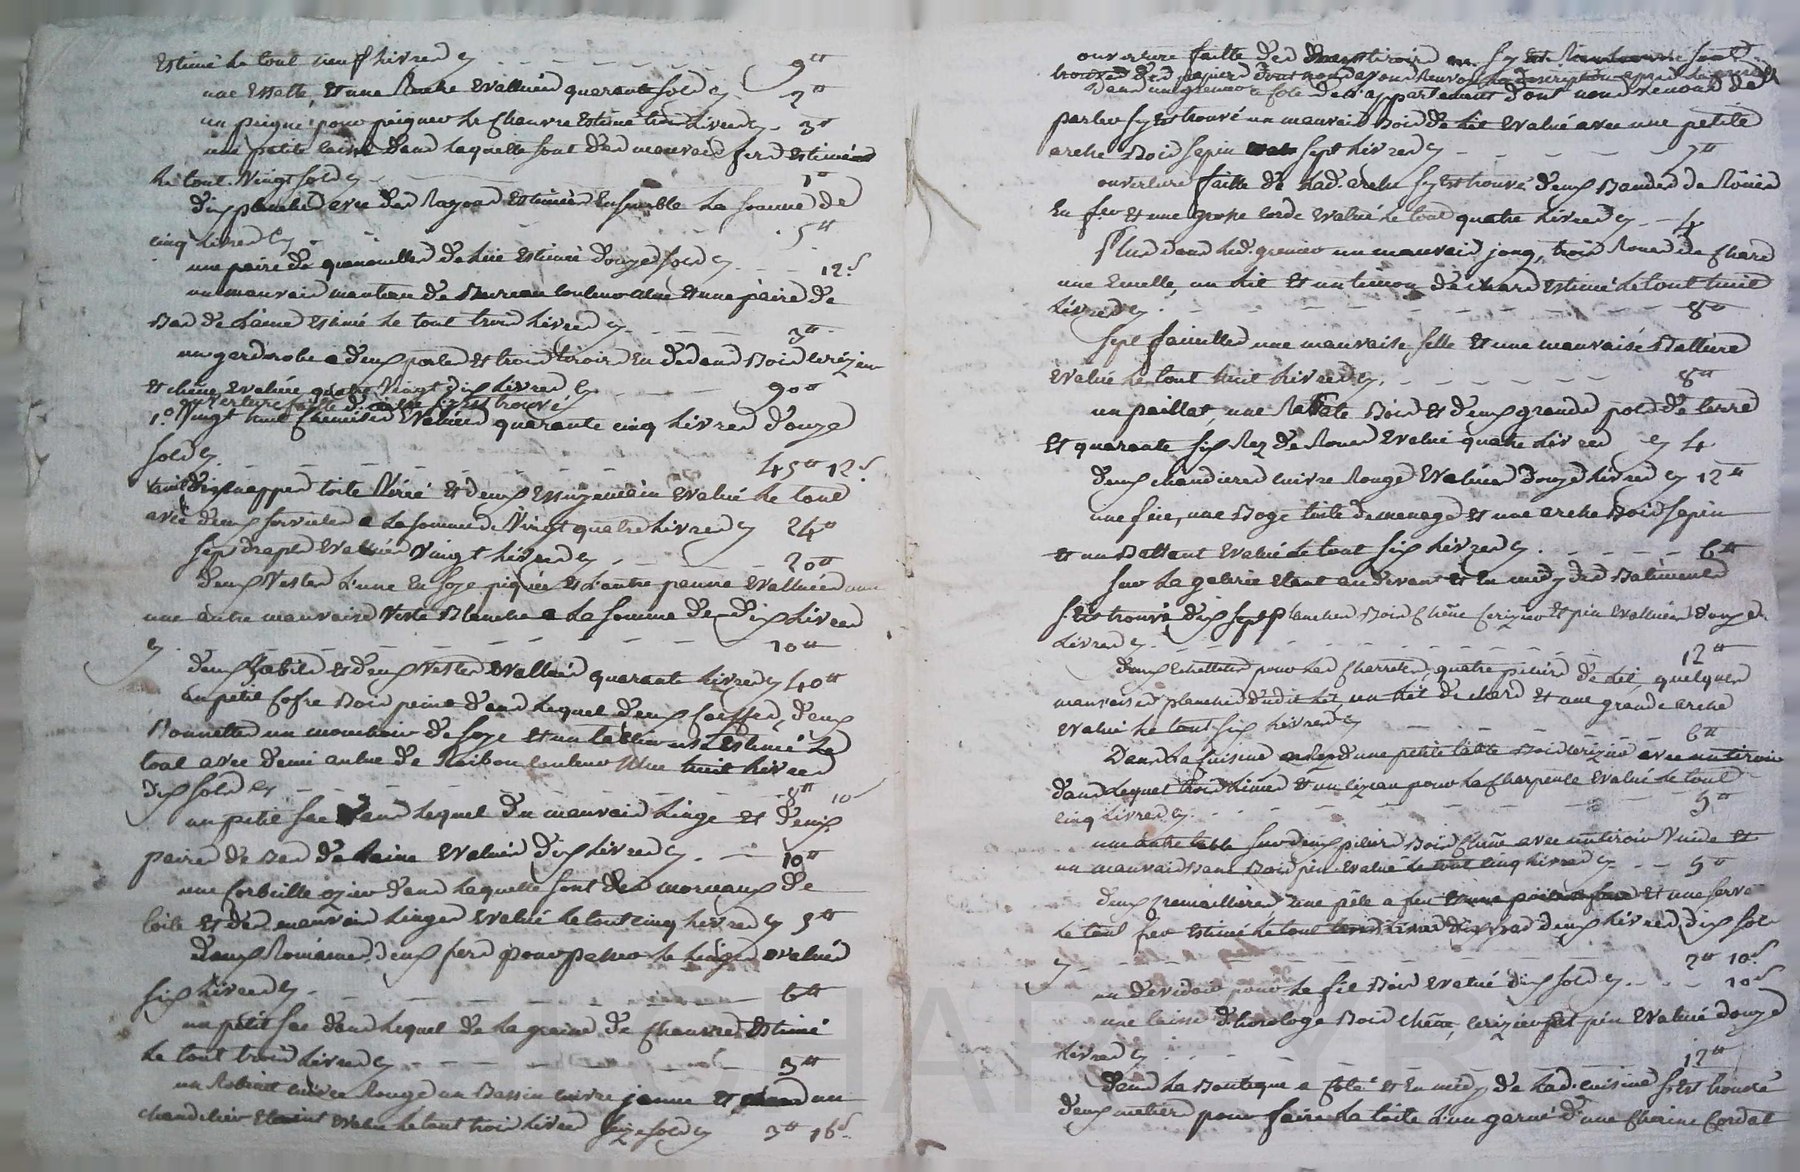 Estimé le tout neuf livres Cy 9tt
une Essette, et une Ruche Evalluée quarante sols Cy 2tt
un peigne pour peigner le chanvre Estimé trois livres Cy 3tt
une petite caisse dans laquelle sont des mauvais fers Estimés
le tout Vingt sols Cy 1tt
dix planches avec des Rayons Estimés Ensemble la somme de
cinq livres Cy 5tt
une paire de quenouilles de lit Estimée douze sols Cy 12s
un mauvais manteau de Bureau couleur bleue et une paire de
Bas de laine Estimé le tout trois livres Cy 3tt
un garderobe a deux portes et trois tiroirs En dedans Bois cerizier
et chêne Evaluée quatre Vingt dix livres Cy 90tt
ouverture faitte d'icelle s'y est trouvé
1° Vingt huit chemises Evaluées quarante cinq livres douze
sols Cy 45tt 12s
huit nappes toile et deux Essuyemain Evalué le tout
avec deux serviettes a la somme de Vingt quatre livres Cy 24tt
sept draps Evalués Vingt livres Cy 20tt
deux Vestes l'une En soye piquée et l'autre panne Evalluées avec
une autre mauvaise Veste Blanche a la somme de dix livres
Cy 10tt
deux habits et deux Vestes Evallués quarante livres Cy 40tt
un petit cofre Bois peint dans lequel deux coiffes, deux
Bonnettes un mouchoir de soye et un tablier usé Estimé le
tout avec demi aulne de Ruibon couleur bleue huit livres
dix sols Cy 8tt 10
un petit sac dans lequel du mauvais linge et deux
paire de Bas de laine Evalués dix livres Cy 10tt
une Corbeille ozier dans laquelle sont des morceaux de
toile et des mauvais linges Evalué le tout cinq livres Cy 5tt
deux Romaines, deux fers pour passer le linge Evalués
six livres Cy 6tt
un petit sac dans lequel de la graine de chanvre Estimé
le tout trois livres Cy 3tt
un Robinet cuivre Rouge un Bassin cuivre jaune et un
chandelier Evalué le tout trois livres seize sols Cy 3tt 16s
ouverture faitte des tiroirs
trouvé des papiers dont nous
Dans un grenier a coté des appartements dont nous venons de
parler s'y est trouvé un mauvais Bois de lit Evalué avec une petite
arche Bois sapin sept livres Cy 7tt
ouverture faitte de lad. arche s'y est trouvé deux Bandes de Roües
En fer et une grosse corde Evalué le tout quatre livres Cy 4
Plus dans led. grenier un mauvais joug, trois Roues de Chard
une Emelle, un lit et un timon de chard Estimé le tout huit
livres Cy 8tt
sept faucilles une mauvaise selle et une mauvaise
Evalué le tout huit livres Cy 8tt
un paillat, une Bois et deux grands pots de terre
et quarante six Rez de Roues Evalué quatre livres Cy 4
deux chaudieres cuivre Rouge Evaluées douze livres Cy 12tt
une scie, une Boge toile de menage et une arche Bois sapin
et un Battant Evalué le tout six livres Cy 6tt
sur la galerie étant au devant et En midy des Batiments
s'est trouvé dix sept planches Bois chêne cerizier et pin Evalluées douze
livres Cy 12tt
deux Echelettes pour les charrettes, quatre piliers de lit, quelques
mauvaises planches dudit lit, un lit de chard et une grande arche
Evalué le tout six livres Cy 6tt
Dans la cuisine une petite table Bois cerizier avec un tiroir
dans lequel trois limes et un cizeau pour la charpente Evalué le tout
cinq livres Cy 5tt
une autre table sur deux piliers Bois chêne avec un tiroir Vuide et
un mauvais Banc Bois pin Evalué le tout cinq livres Cy 5tt
deux cremaillieres une pêle a feu et une
le tout fer Estimé le tout deux livres dix sols
Cy 2tt 10s
un devidoir pour le fil Bois Evalué dix sols Cy 10s
une caisse d'horloge Bois chêne, cerizier et pin Evalué douze
livres Cy 12tt
dans la Boutique a coté et En midy de lad. cuisine s'est trouvé
deux metiers pour faire la toile l'un garni d'une